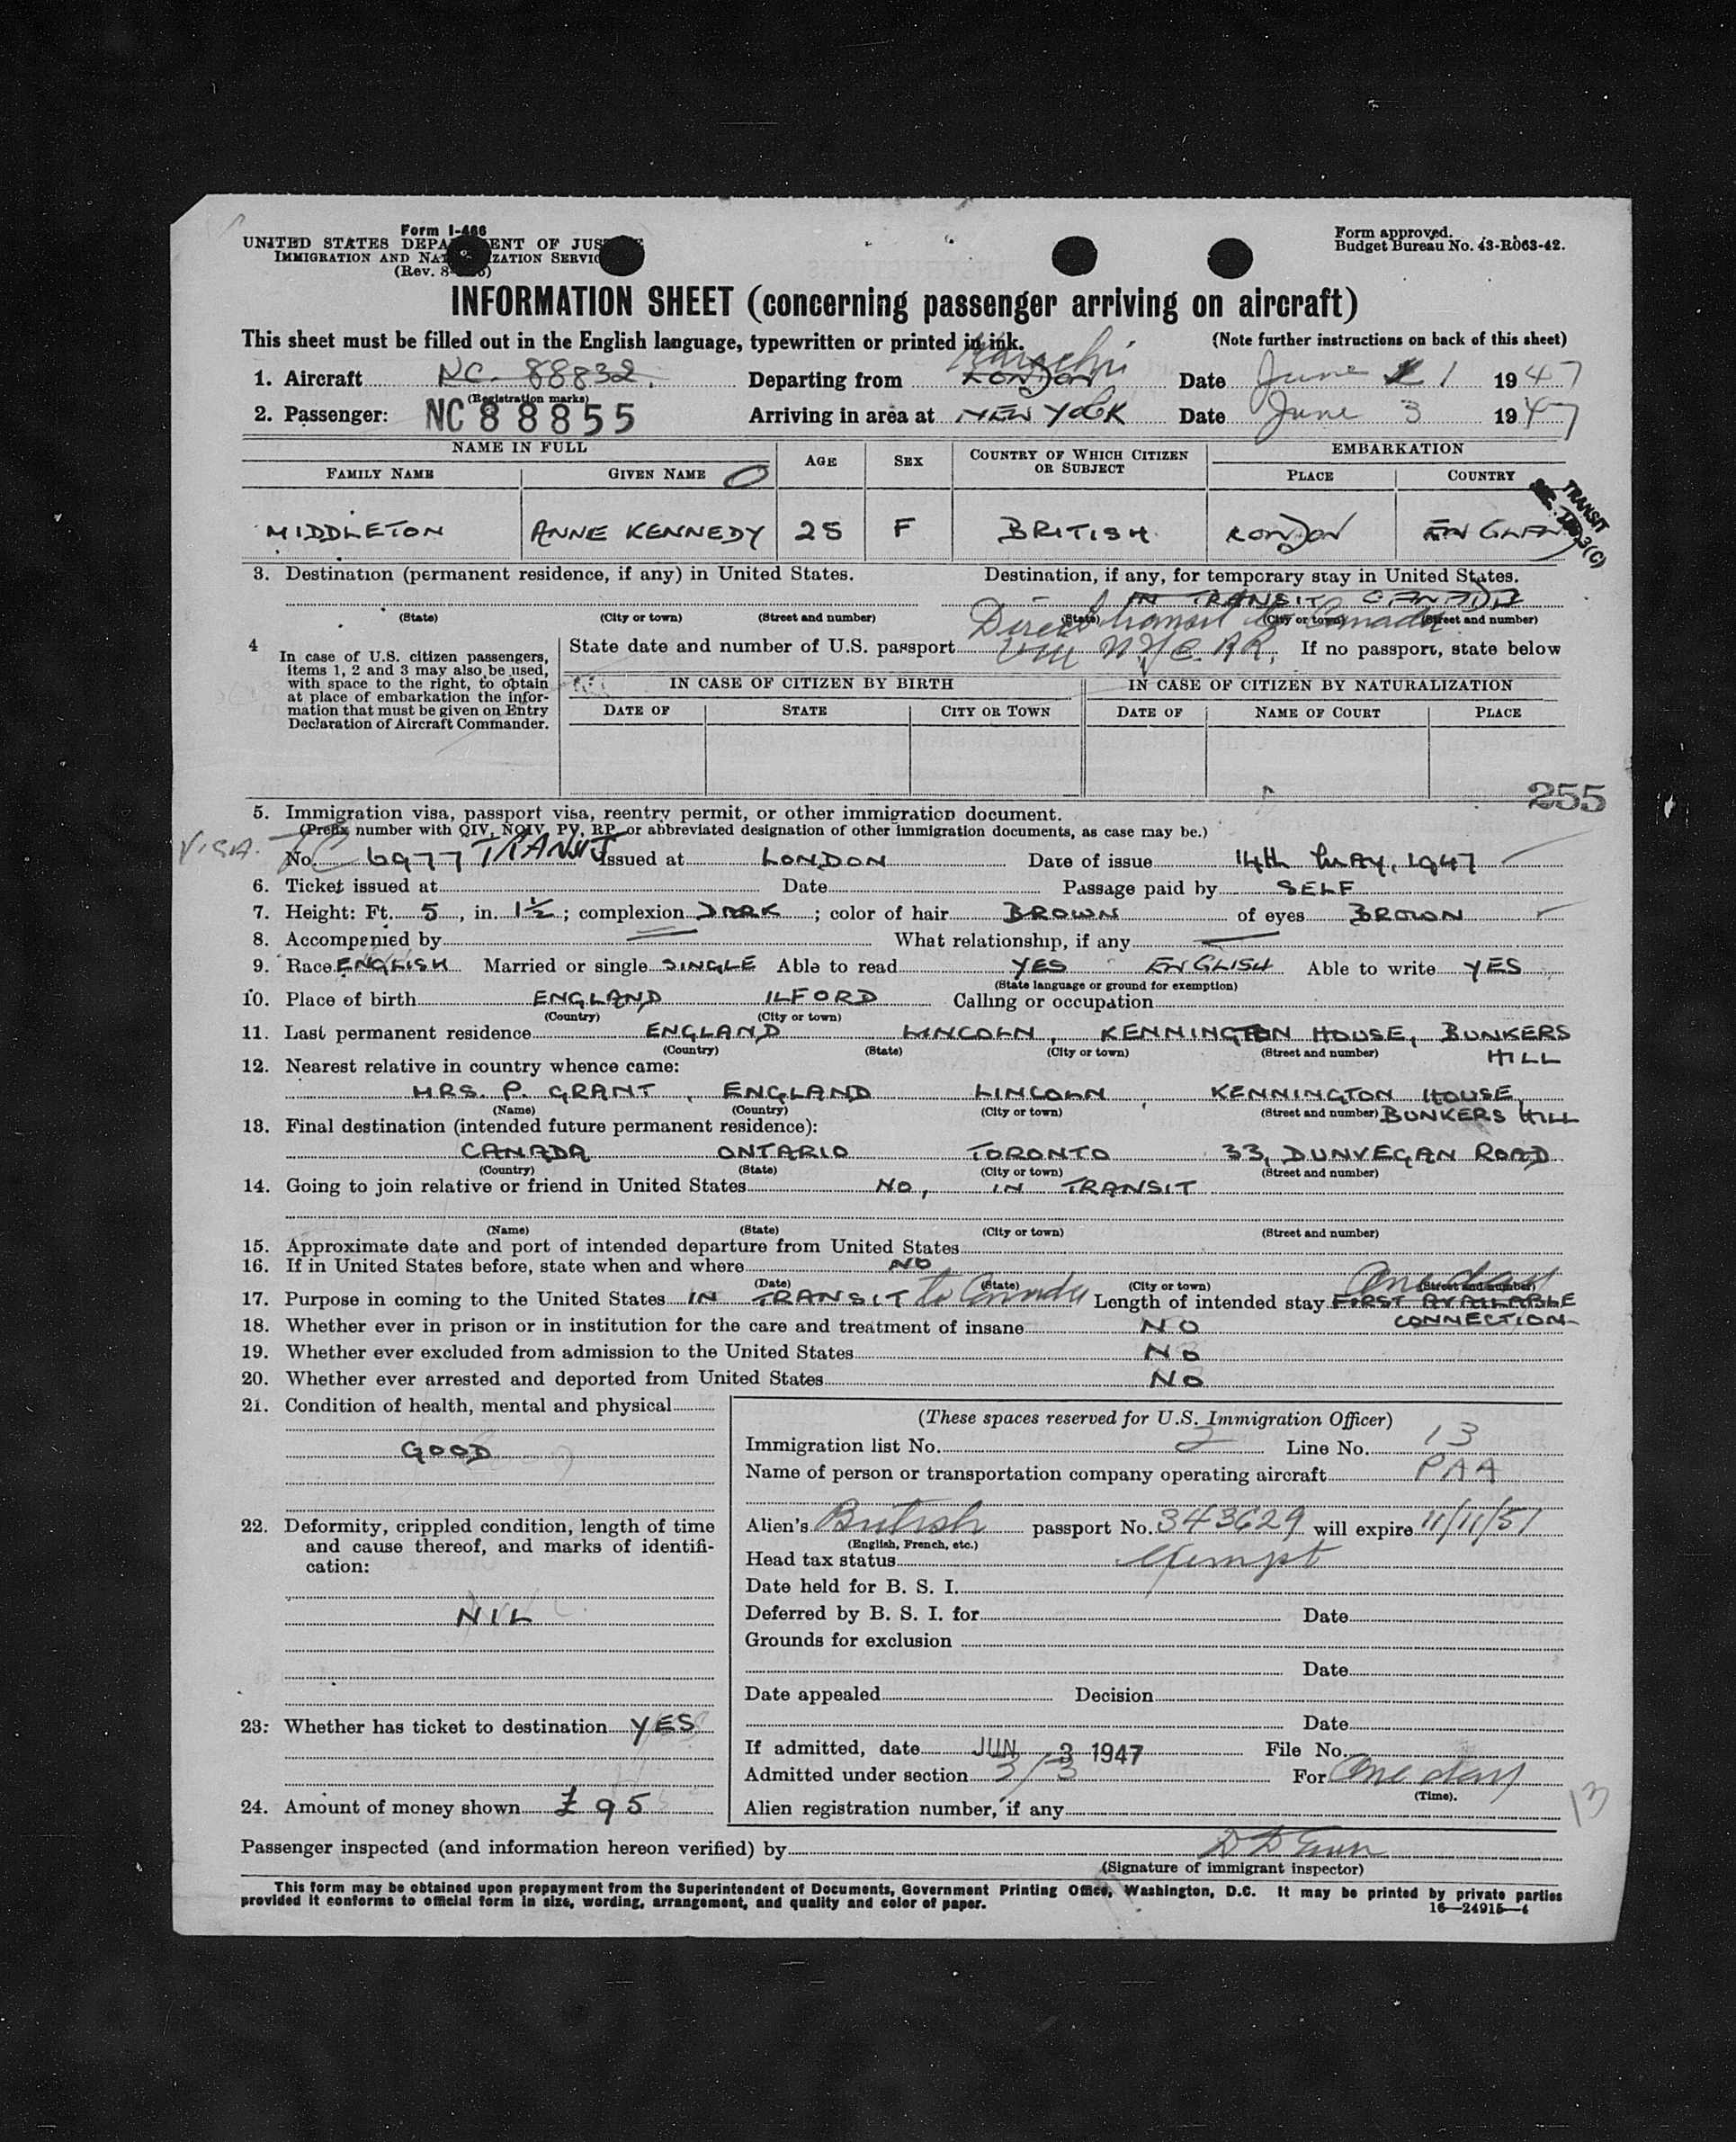 Form I-466
UNITED STATES DEPARTMENT OF JUSTICE
IMMIGRATION AND NATURALIZATION SERVICE
(Rev. 8-
Form approved.
Budget Bureau No. 43-R063-42.
INFORMATION SHEET (concerning passenger arriving on aircraft)
This sheet must be filled out in the English language, typewritten or printed in ink. (Note further instructions on back of this sheet)
Karachi
1. Aircraft NC. 88832. Departing from LONDON Date June 1 1947
(Registration marks)
2. Passenger: NC 88855 Arriving in area at NEW YORK Date June 3 1947
NAME IN FULL AGE SEX COUNTRY OF WHICH CITIZEN OR SUBJECT EMBARKATION
FAMILY NAME GIVEN NAME PLACE COUNTRY
TRANSIT
3(C)
MIDDLETON ANNE KENNEDY 25 F BRITISH LONDON ENGLAND
3. Destination (permanent residence, if any) in United States. Destination, if any, for temporary stay in United States.
IN TRANSIT CANADA
(State) (City or town) (Street and number) (State) (City or town) (Street and number)
Direct transit to Canada
4 In case of U.S. citizen passengers, items 1, 2 and 3 may also be used, with space to the right, to obtain at place of embarkation the information that must be given on Entry Declaration of Aircraft Commander.
State date and number of U.S. passport via N.Y.C. RR. If no passport, state below
IN CASE OF CITIZEN BY BIRTH IN CASE OF CITIZEN BY NATURALIZATION
DATE OF STATE CITY OR TOWN DATE OF NAME OF COURT PLACE
255
5. Immigration visa, passport visa, reentry permit, or other immigration document.
(Prefix number with QIV, NQIV, PV, RP, or abbreviated designation of other immigration documents, as case may be.)
VISA. No. TC 6977 TRANSIT Issued at LONDON Date of issue 14th MAY, 1947
6. Ticket issued at Date Passage paid by SELF
7. Height: Ft. 5, in. 1½; complexion DARK; color of hair BROWN of eyes BROWN
8. Accompanied by What relationship, if any
9. Race ENGLISH Married or single SINGLE Able to read YES ENGLISH Able to write YES
(State language or ground for exemption)
10. Place of birth ENGLAND ILFORD Calling or occupation
(Country) (City or town)
11. Last permanent residence ENGLAND LINCOLN, KENNINGTON HOUSE, BUNKERS
(Country) (State) (City or town) (Street and number) HILL
12. Nearest relative in country whence came:
MRS. P. GRANT, ENGLAND LINCOLN, KENNINGTON HOUSE,
(Name) (Country) (City or town) (Street and number) BUNKERS HILL
13. Final destination (intended future permanent residence):
CANADA ONTARIO TORONTO 33, DUNVEGAN ROAD
(Country) (State) (City or town) (Street and number)
14. Going to join relative or friend in United States NO, IN TRANSIT
(Name) (State) (City or town) (Street and number)
15. Approximate date and port of intended departure from United States
16. If in United States before, state when and where NO
(Date) (State) (City or town) (Street and number)
One day
17. Purpose in coming to the United States IN TRANSIT to Canada Length of intended stay FIRST AVAILABLE
CONNECTION
18. Whether ever in prison or in institution for the care and treatment of insane NO
19. Whether ever excluded from admission to the United States NO
20. Whether ever arrested and deported from United States NO
21. Condition of health, mental and physical
GOOD
22. Deformity, crippled condition, length of time and cause thereof, and marks of identification:
NIL
23: Whether has ticket to destination YES
24. Amount of money shown £95
(These spaces reserved for U.S. Immigration Officer)
Immigration list No. 2 Line No. 13
Name of person or transportation company operating aircraft PAA
Alien's British passport No. 343629 will expire 11/11/51
(English, French, etc.)
Head tax status Exempt
Date held for B. S. I.
Deferred by B. S. I. for Date
Grounds for exclusion
Date
Date appealed Decision
Date
If admitted, date JUN 3 1947 File No.
Admitted under section 3/3 For One day
(Time).
Alien registration number, if any
13
Passenger inspected (and information hereon verified) by
(Signature of immigrant inspector)
This form may be obtained upon prepayment from the Superintendent of Documents, Government Printing Office, Washington, D.C. It may be printed by private parties
provided it conforms to official form in size, wording, arrangement, and quality and color of paper.
16—24915-4